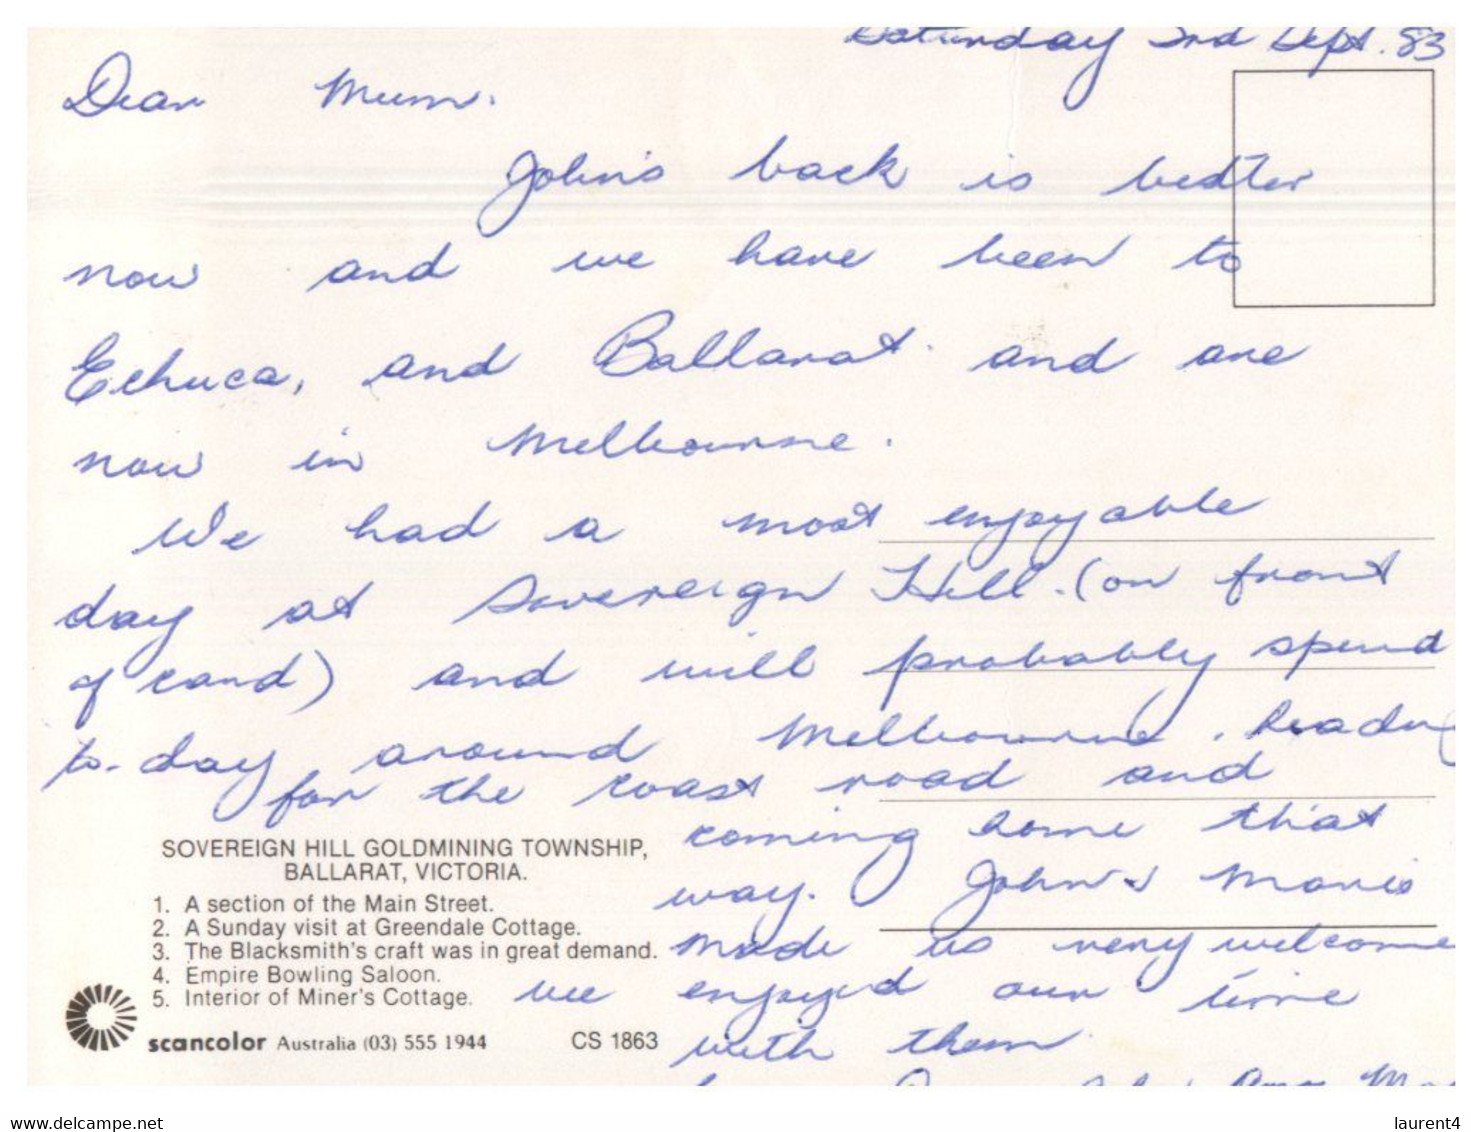 Saturday 3rd Sept. 83
Dear Mum.
John's back is better
now and we have been to
Echuca, and Ballarat and are
now in Melbourne.
We had a most enjoyable
day at Sovereign Hill. (on front
of card) and will probably spend
to-day around Melbourne. heading
for the coast road and
coming home that
way. John & Marie
made us very welcome
we enjoyed our time
with them
SOVEREIGN HILL GOLDMINING TOWNSHIP,
BALLARAT, VICTORIA.
1. A section of the Main Street.
2. A Sunday visit at Greendale Cottage.
3. The Blacksmith's craft was in great demand.
4. Empire Bowling Saloon.
5. Interior of Miner's Cottage.
scancolor Australia (03) 555 1944 CS 1863
www.delcampe.net
laurent4